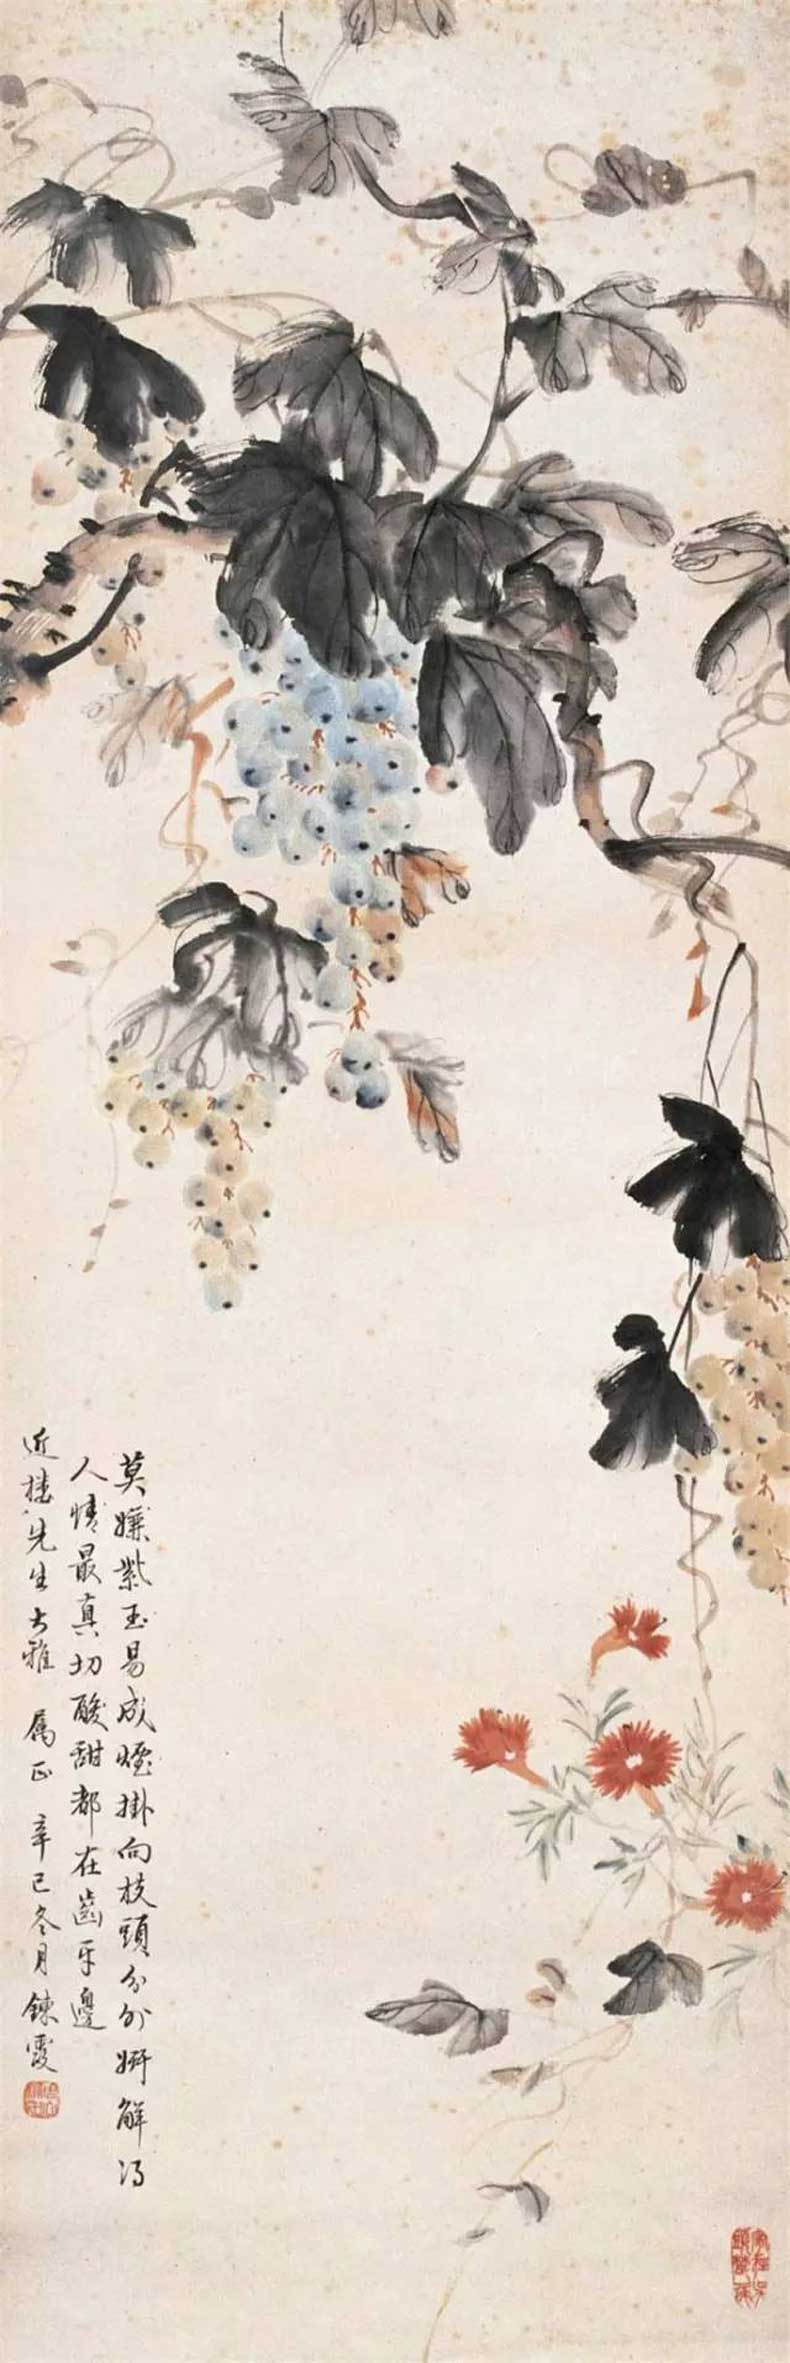 莫嫌紫玉易成煙掛向枝頭分外妍解得
人情最真切酸甜都在齒牙邊
近樓先生大雅 属正 辛巳冬月 鍊霞